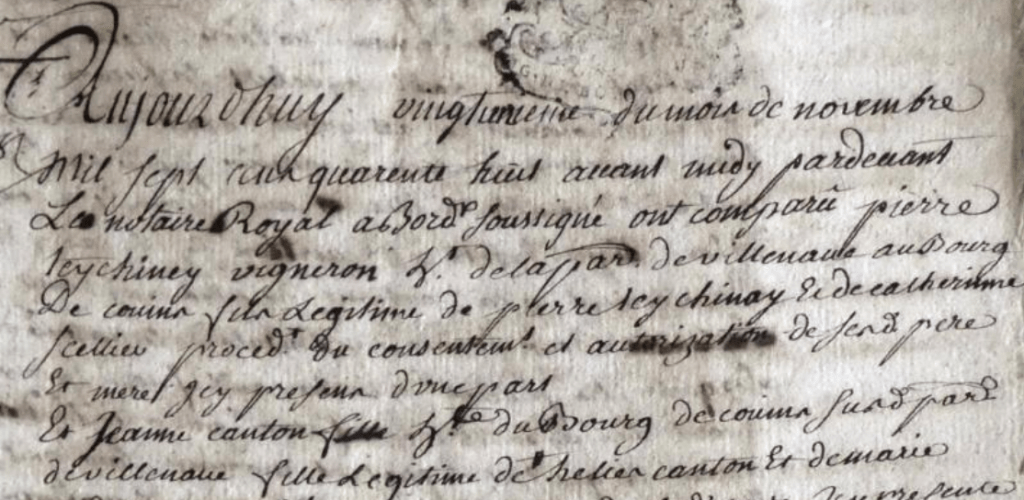 Aujourdhuy vingtunieme du mois de novembre
Mil sept cens quarente huit avant midy pardevant
Le notaire Royal a Bord.x soussigné ont comparû pierre
teychiney vigneron h.t de la par.e de villenave au Bourg
De couins fils Legitime de pierre teychinay Et de catherinne
scellier proced.t du consentem.t et autorization de sesd. pere
Et mere jcy presens d'une part
Et Jeanne canton fille h.te du Bourg de couins susd. par.e
de villenave fille Legitime de helies canton Et de marie